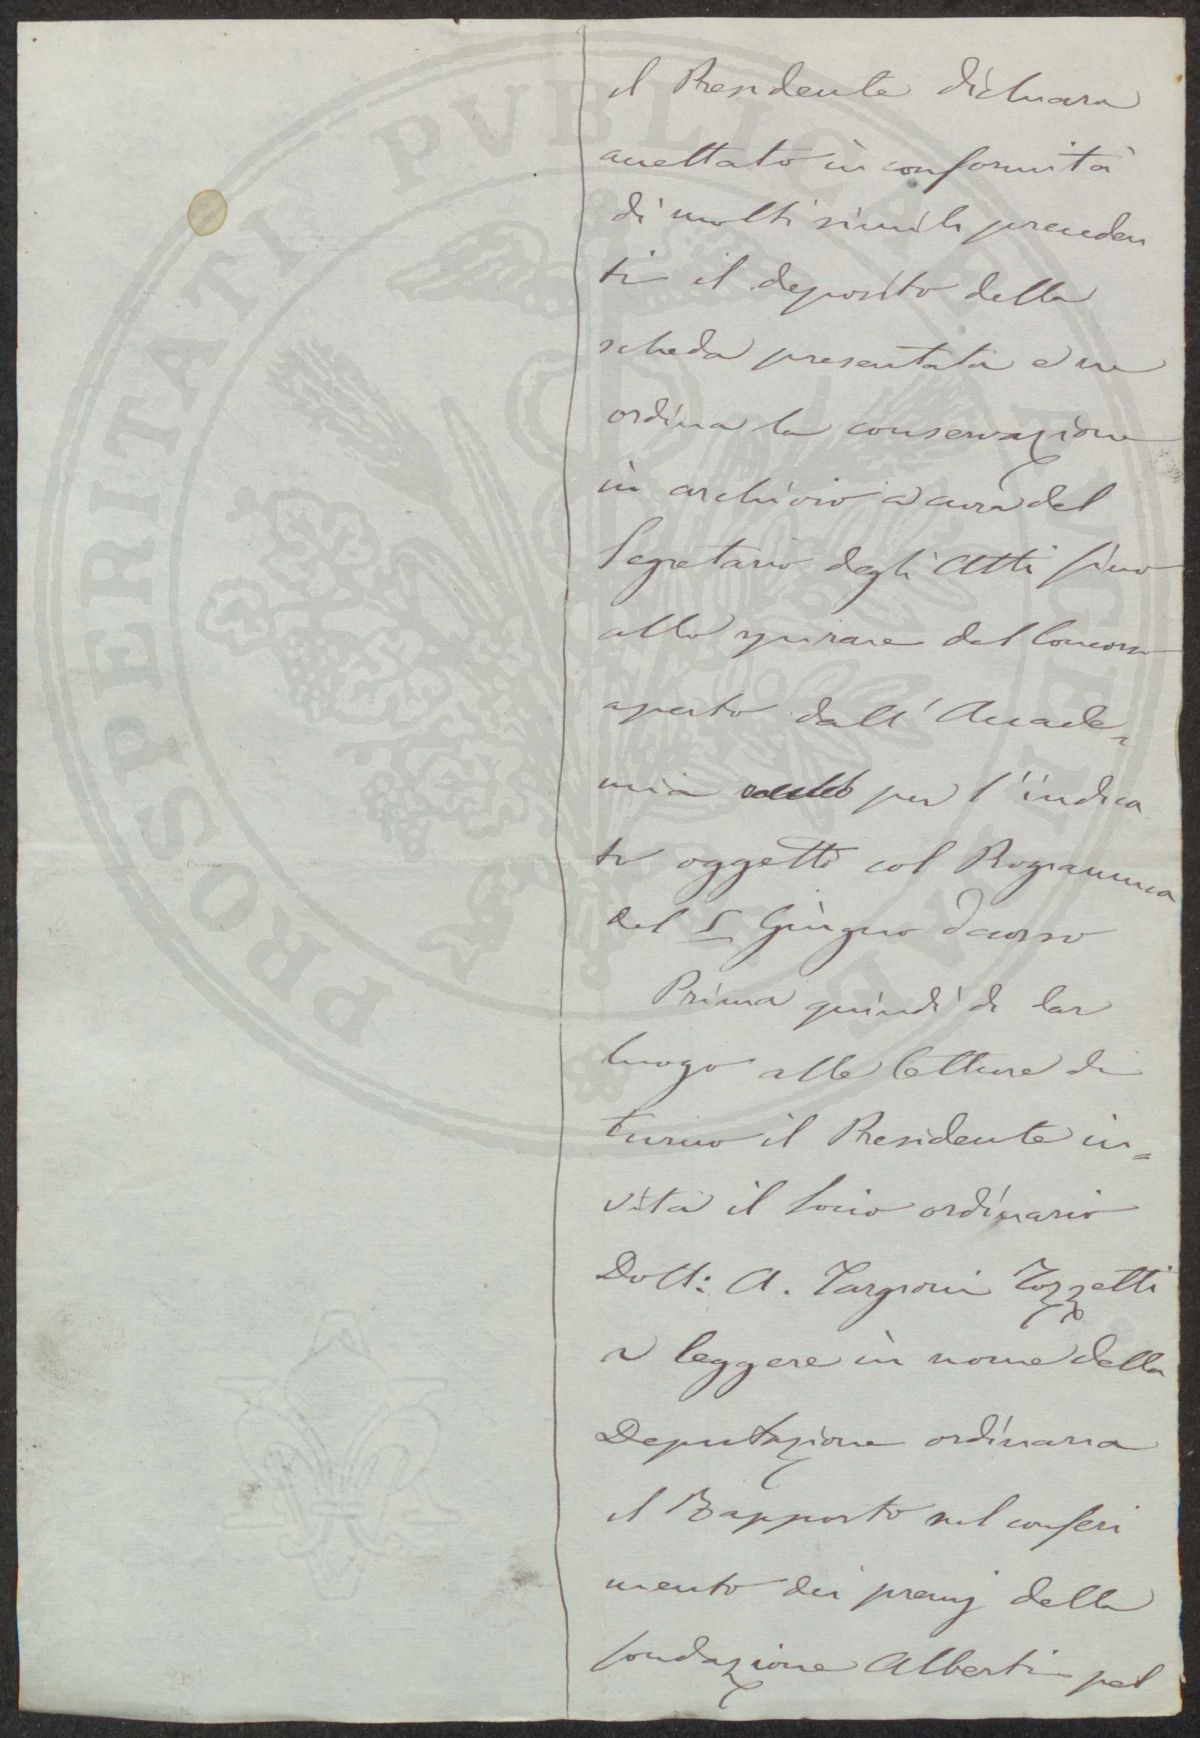 il Presidente dichiara
accettato in conformità
di molti simili preceden
ti il deposito della
scheda presentata e ne
ordina la conservazione
in archivio a cura del
Segretario degli Atti fino
allo spirare del Concorso
aperto dall' Accade-
mia per l'indica
to oggetto col Programma
del Giugno decorso
Prima quindi di dar
luogo alle letture di
turno il Presidente in=
vita il Socio ordinario
Dott: A. Targioni Tozzetti
a leggere in nome della
Deputazione ordinaria
il Rapporto sul conferi
mento dei premj della
fondazione Alberti pel
PROSPERITATI PVBLICAE AVGENDAE